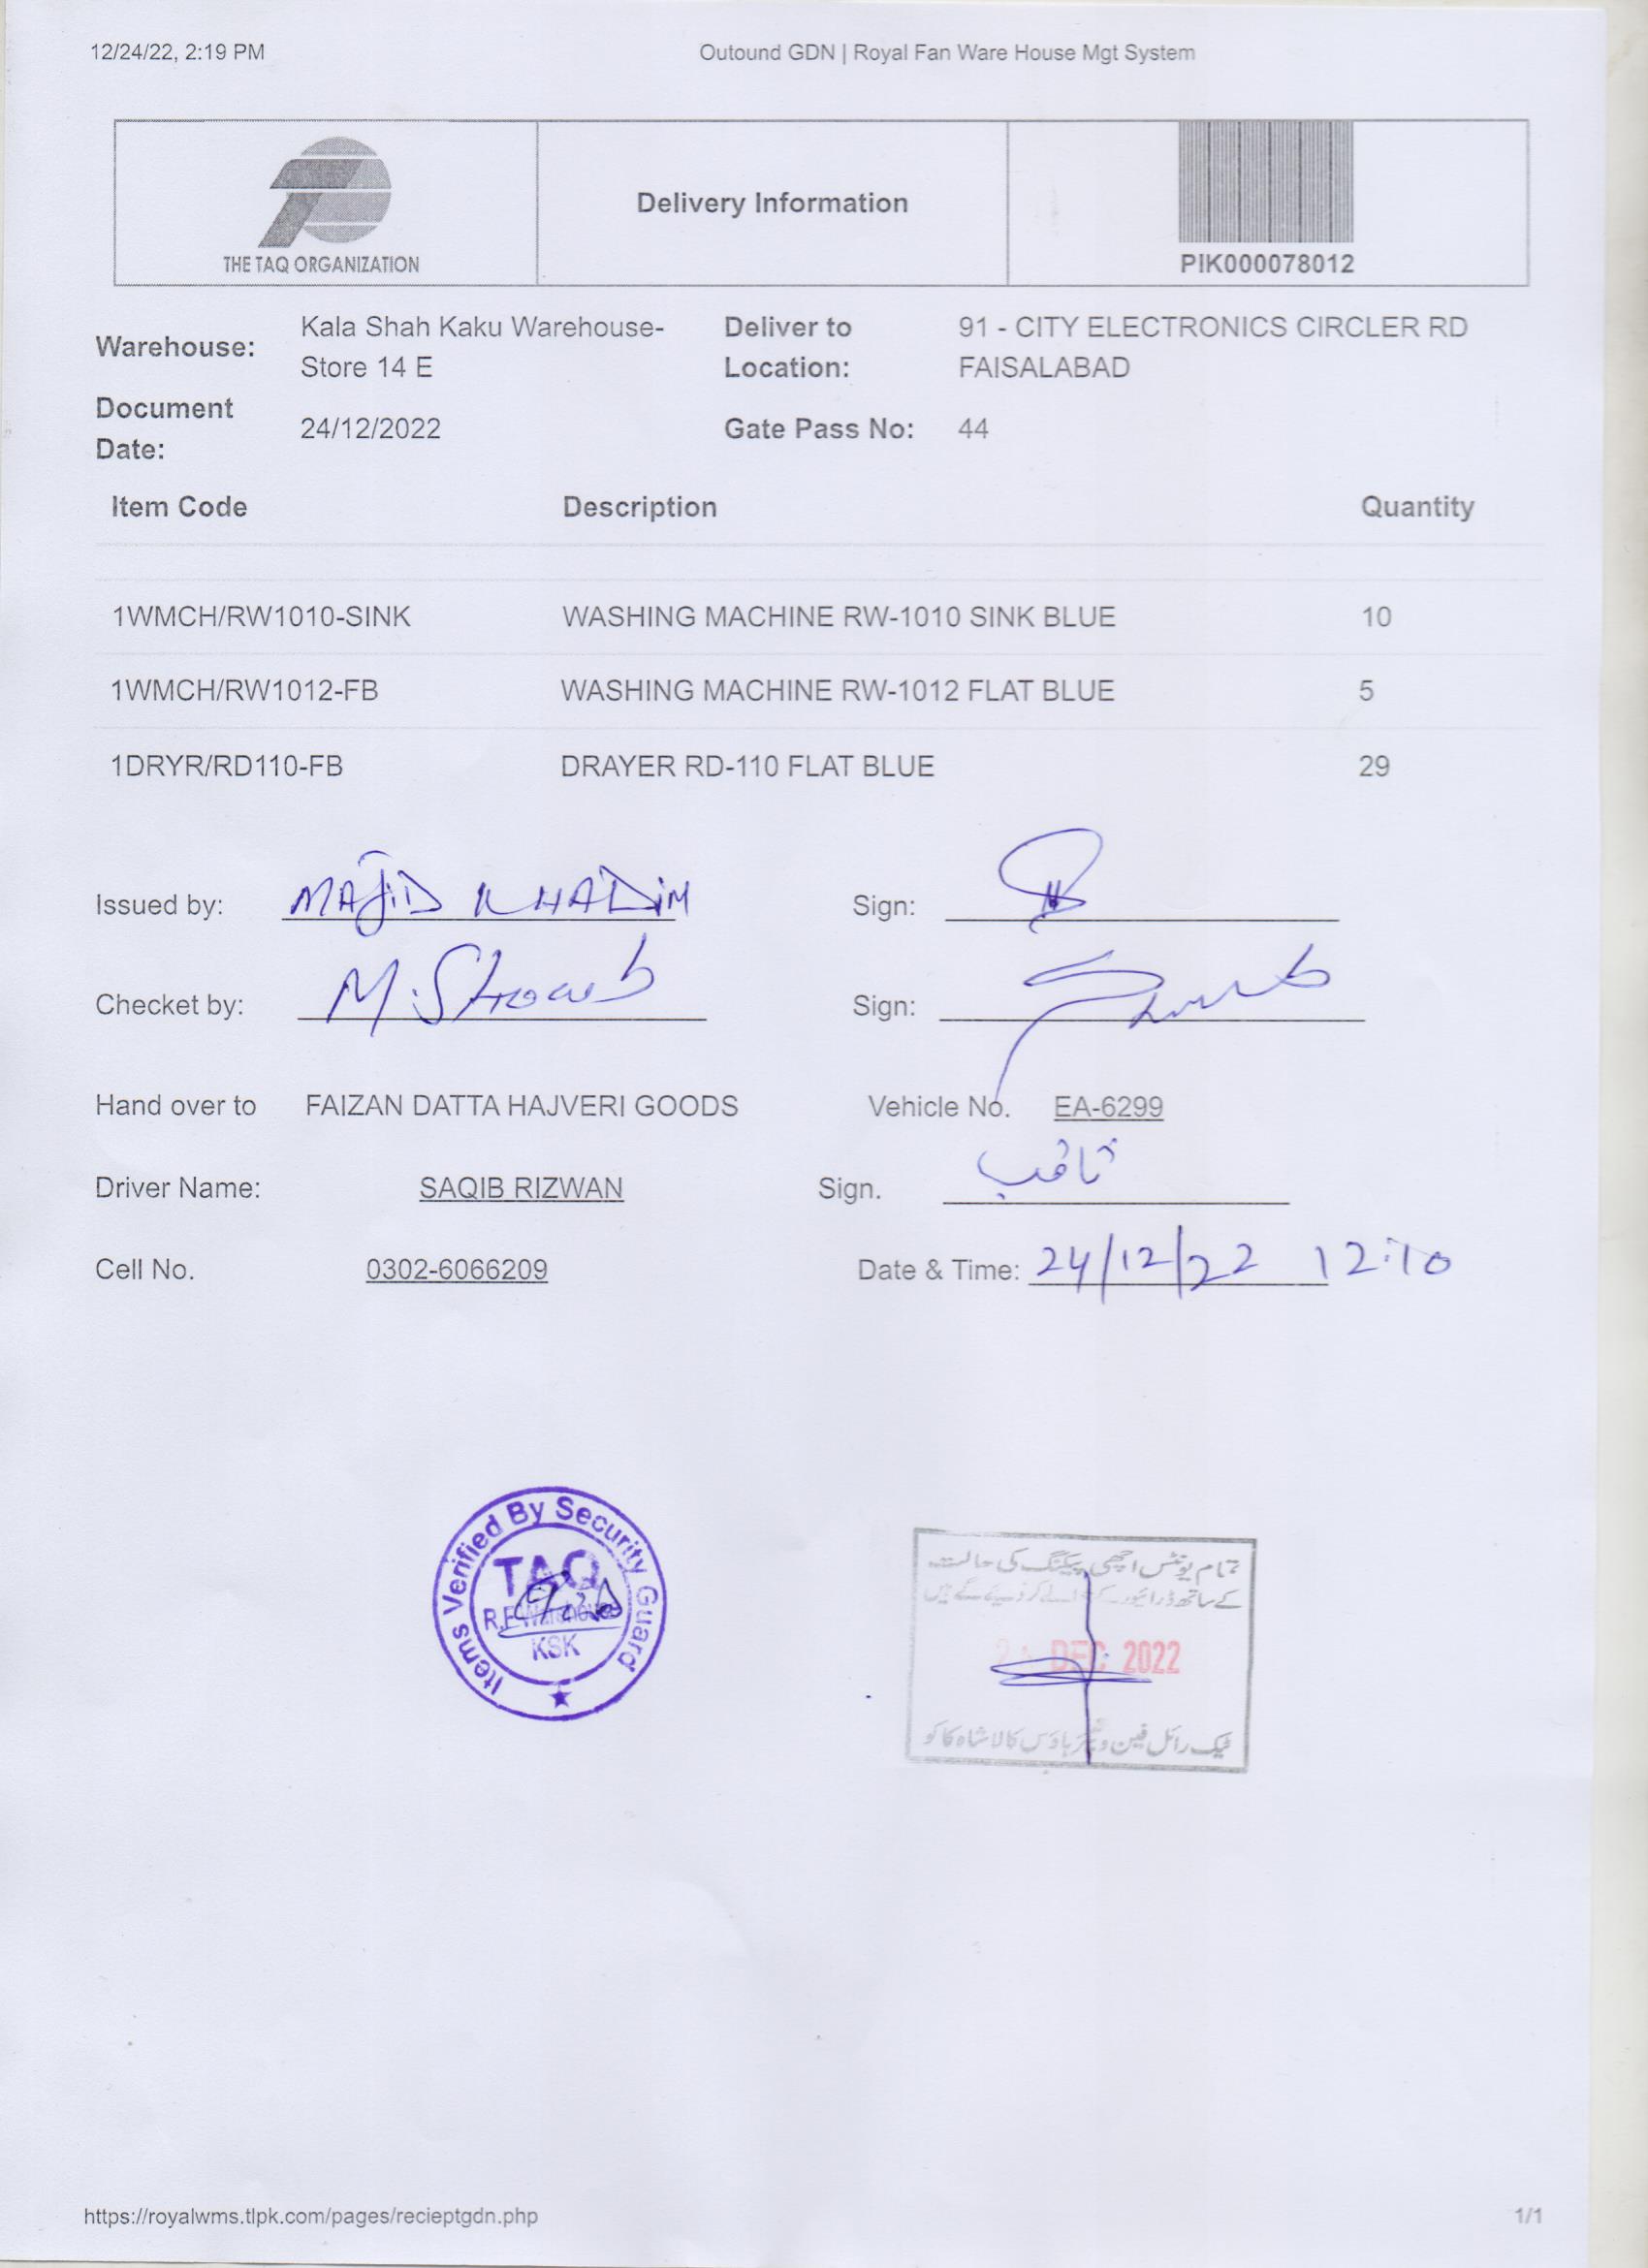 12/24/22, 2:19 PM Outound GDN | Royal Fan Ware House Mgt System
THE TAQ ORGANIZATION
Delivery Information
PIK000078012
Warehouse: Kala Shah Kaku Warehouse-
Store 14 E
Deliver to
Location:
91 - CITY ELECTRONICS CIRCLER RD
FAISALABAD
Document
Date:
24/12/2022
Gate Pass No: 44
Item Code Description Quantity
1WMCH/RW1010-SINK WASHING MACHINE RW-1010 SINK BLUE 10
1WMCH/RW1012-FB WASHING MACHINE RW-1012 FLAT BLUE 5
1DRYR/RD110-FB DRAYER RD-110 FLAT BLUE 29
Issued by: MAJID KHADIM Sign:
Checket by: M. Shoaib Sign:
Hand over to FAIZAN DATTA HAJVERI GOODS Vehicle No. EA-6299
Driver Name: SAQIB RIZWAN Sign. ثاقب
Cell No. 0302-6066209 Date & Time: 24/12/22 12:10
Items Verified By Security Guard
TAQ
R.F Warehouse
KSK
تمام یونٹس اچھی پیکنگ کی حالت
کے ساتھ ڈرائیور کے
DEC 2022
ٹیک رائل فین ویئر ہاؤس کالا شاہ کاکو
https://royalwms.tlpk.com/pages/recieptgdn.php 1/1